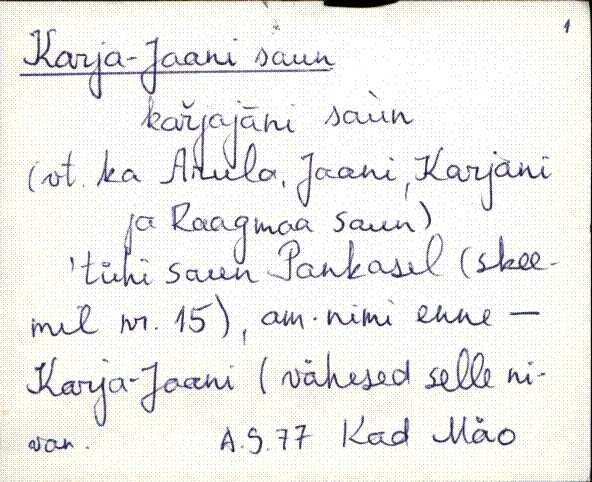 1
Karja-Jaani saun
kaŕjajāni saùn
(vt. ka Arula, Jaani, Karjani
ja Raagmaa saun)
'tühi saun Pankasel (skee-
mil nr. 15), am. nimi enne —
Karja-Jaani (vähesed selle ni-
van. A.S.77 Kad Mäo